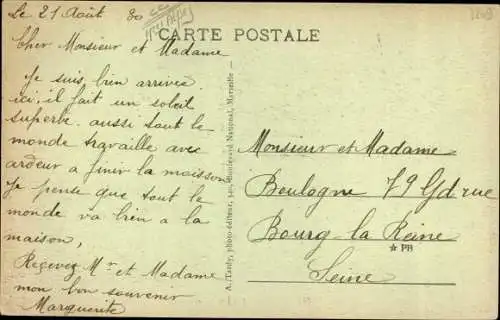 Le 21 Août 30
CARTE POSTALE
Cher Monsieur et Madame
Je suis bien arrivée
ici, il fait un soleil
superbe. aussi tout le
monde travaille avec
ardeur a finir la maison
Je pense que tout le
monde va bien a la
maison,
Recevez Mr et Madame
mon bon souvenir
Marguerite
A. Tardy, photo-éditeur, Boulevard National, Marseille
Monsieur et Madame
Boulogne 79 Gd rue
Bourg la Reine
PB
Seine